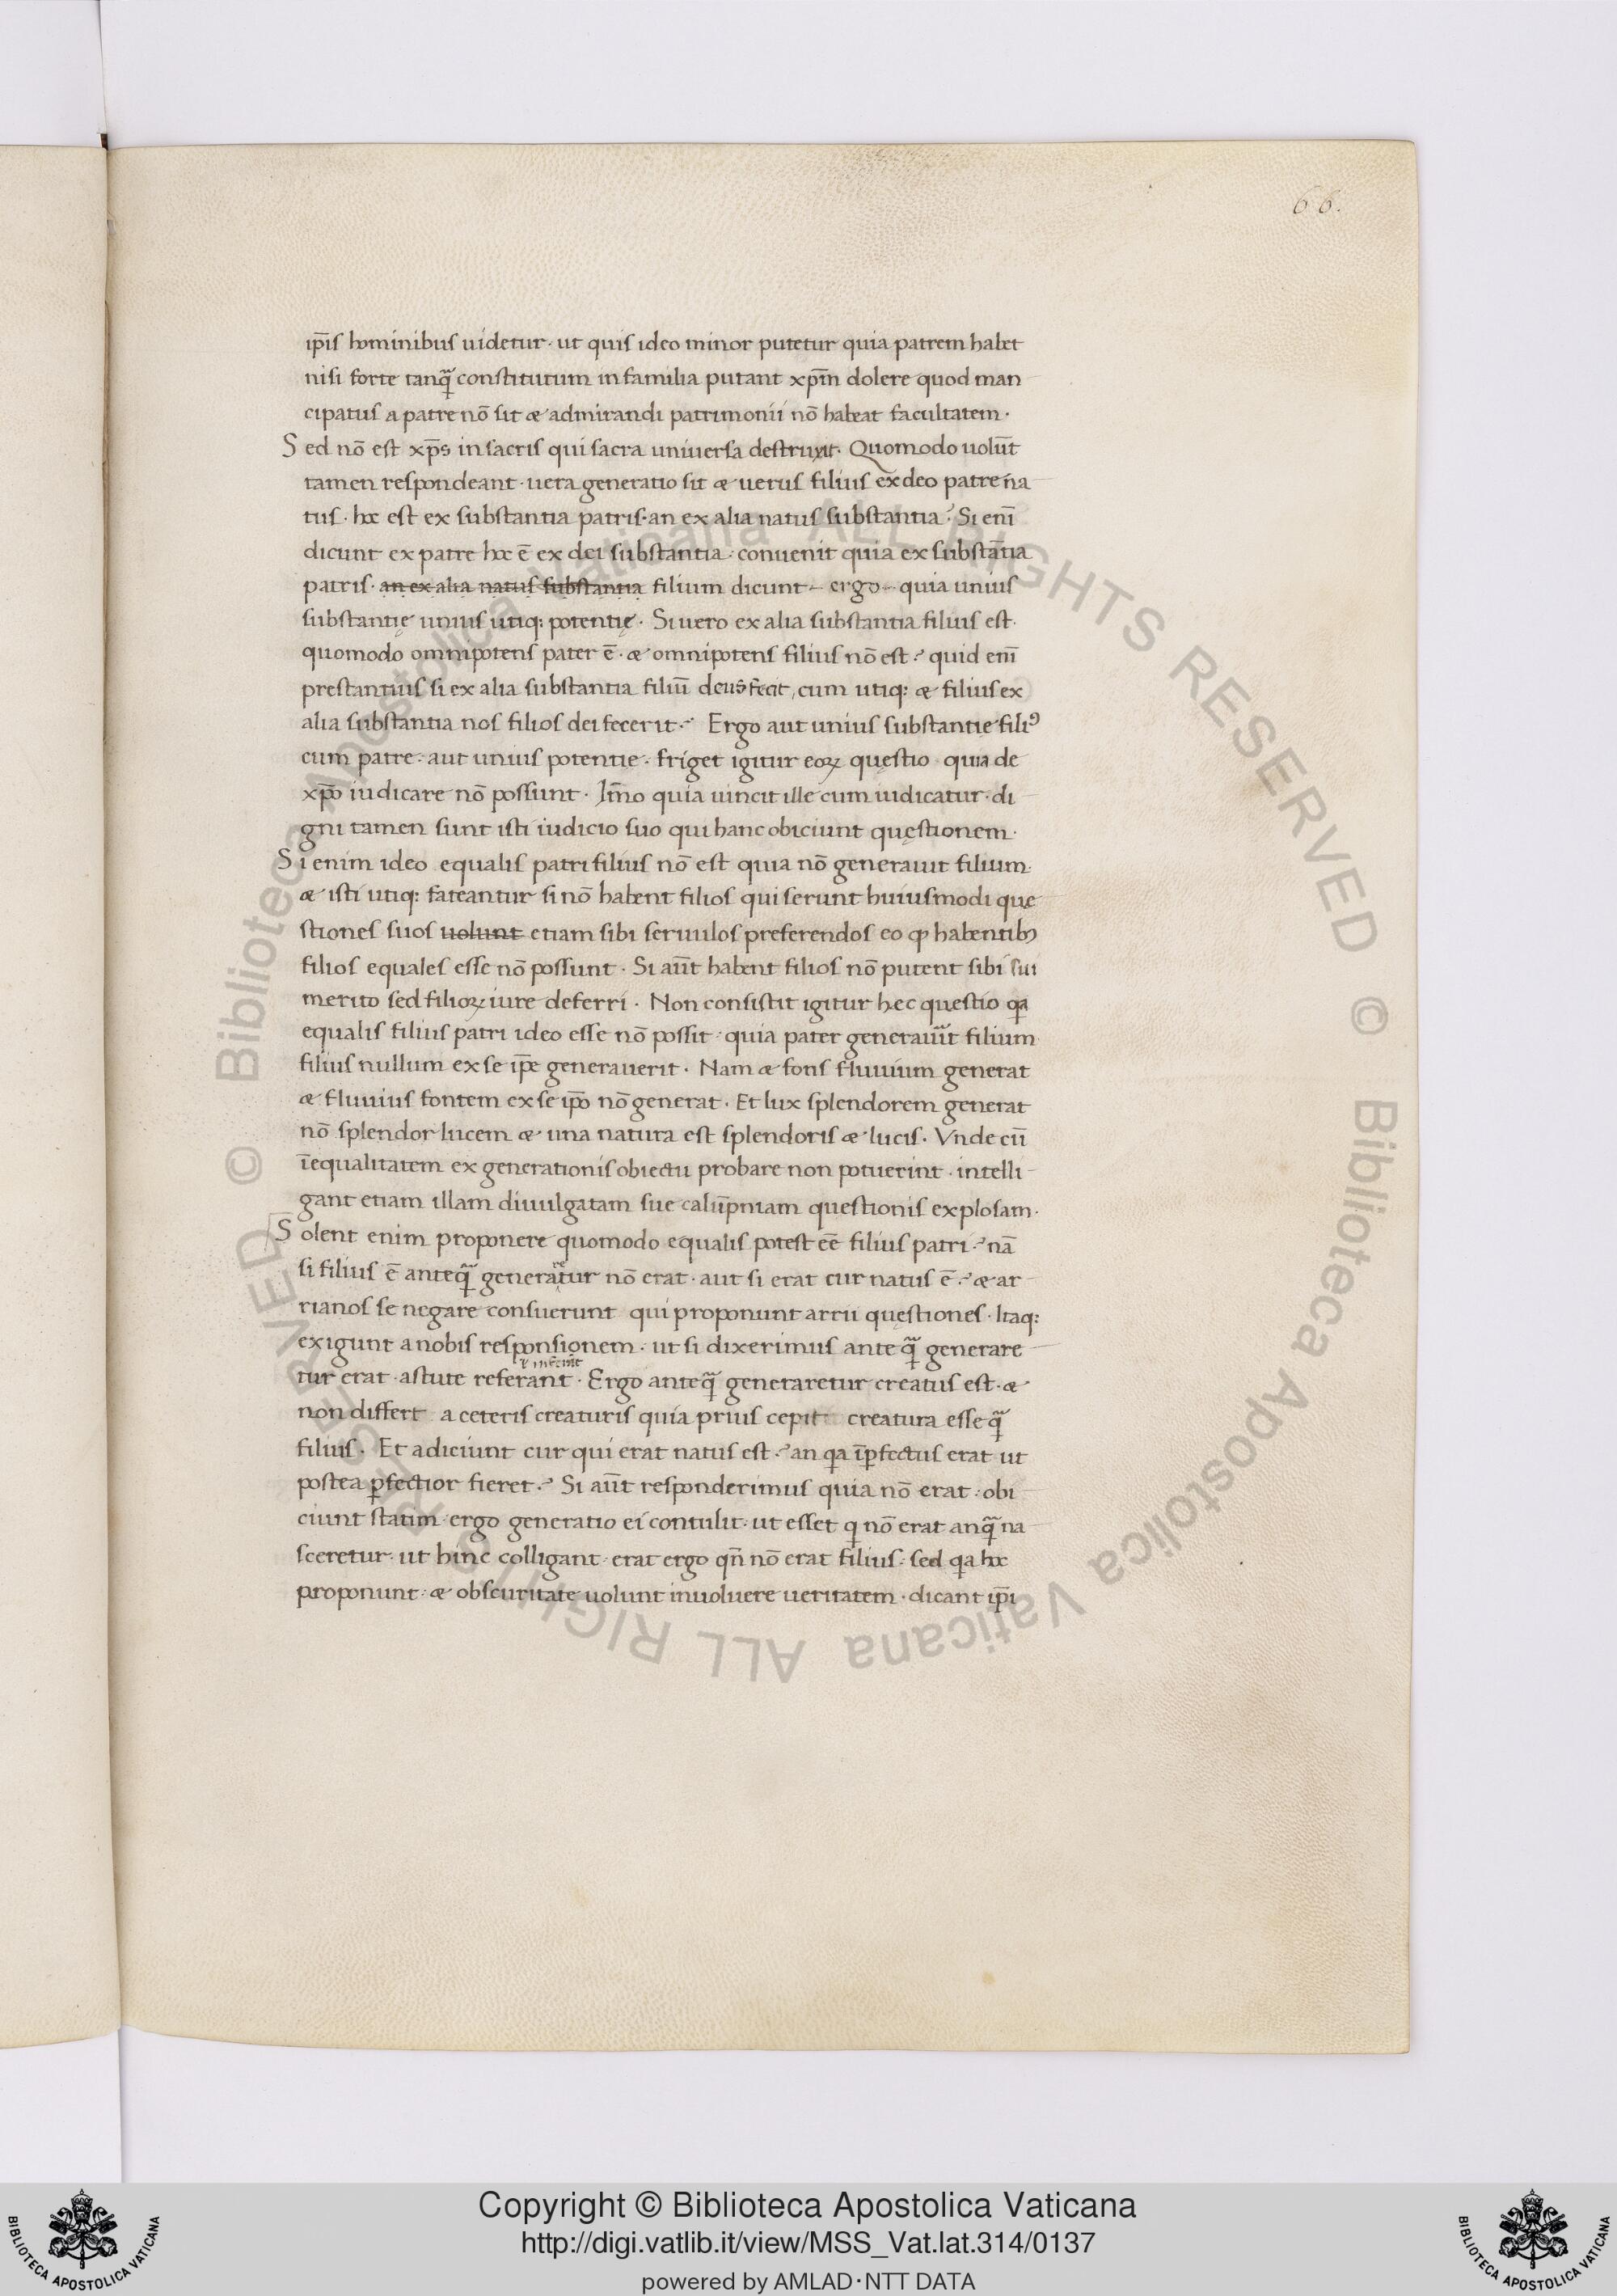 66.
ip̄is hominibus uidetur · ut quis ideo minor putetur quia patrem habet
nisi forte tanq̃ constitutum in familia putant xp̄m dolere quod man
cipatus a patre nō sit & admirandi patrimonii nō habeat facultatem ·
Sed nō est xp̄s in sacris qui sacra uniuersa destruxit · Quomodo uolūt
tamen respondeant · uera generatio sit & uerus filius ex deo patre na
tus · hoc est ex substantia patris · an ex alia natus substantia ? Si enī
dicunt ex patre hoc ē ex dei substantia · conuenit quia ex substātia
patris · an ex alia natus substantia filium dicunt – ergo – quia unius
substantię unius utiq: potentię · Si uero ex alia substantia filius est ·
quomodo omnipotens pater ē · & omnipotens filius nō est ? quid enī
prestantius si ex alia substantia filiū deus fecit , cum utiq: & filius ex
alia substantia nos filios dei fecerit ? Ergo aut unius substantię filiꝰ
cum patre · aut unius potentie · friget igitur eoꝝ quęstio quia de
xp̄o iudicare nō possunt · Im̄o quia uincit ille cum iudicatur · di
gni tamen sunt isti iudicio suo qui hanc obiciunt quęstionem ·
Si enim ideo equalis patri filius nō est quia nō generauit filium ·
& isti utiq: fateantur si nō habent filios qui serunt huiusmodi quę
stiones suos uolunt etiam sibi seruulos preferendos eo ꝙ habentibꝫ
filios equales esse nō possunt · Si aūt habent filios nō putent sibi sui
merito sed filioꝝ iure deferri · Non consistit igitur hec questio qa
equalis filius patri ideo esse nō possit · quia pater generauit filium
filius nullum ex se ip̄e generauerit · Nam & fons fluuium generat
& fluuius fontem ex se ip̄o nō generat · Et lux splendorem generat
nō splendor lucem & una natura est splendoris & lucis · Vnde cū
īequalitatem ex generationis obiectu probare non potuerint · intelli
gant etiam illam diuulgatam sue calūpniam questionis explosam ·
Solent enim proponere quomodo equalis potest eē filius patri ? nā
si filius ē anteq̃ generaretur nō erat · aut si erat cur natus ē ? & ar
rianos se negare consuerunt qui proponunt arrii quęstiones · Itaq:
exigunt a nobis responsionem · ut si dixerimus ante q̃ generare
tur erat · astute referant · Ergo anteq̃ generaretur creatus est · &
non differt a ceteris creaturis quia prius cepit creatura esse q̃
filius · Et adiciunt cur qui erat natus est ? an qa īp̄fectus erat ut
postea p̄fectior fieret ? Si aūt responderimus quia nō erat · obi
ciunt statim · ergo generatio ei contulit · ut esset q nō erat anq̃ na
sceretur · ut hinc colligant · erat ergo qn̄ nō erat filius · sed qa hoc
proponunt · & obscuritate uolunt inuoluere ueritatem · dicant ip̄i
Copyright © Biblioteca Apostolica Vaticana
http://digi.vatlib.it/view/MSS_Vat.lat.314/0137
powered by AMLAD·NTT DATA
BIBLIOTECA APOSTOLICA VATICANA
BIBLIOTECA APOSTOLICA VATICANA
© Biblioteca Apostolica Vaticana ALL RIGHTS RESERVED
© Biblioteca Apostolica Vaticana ALL RIGHTS RESERVED